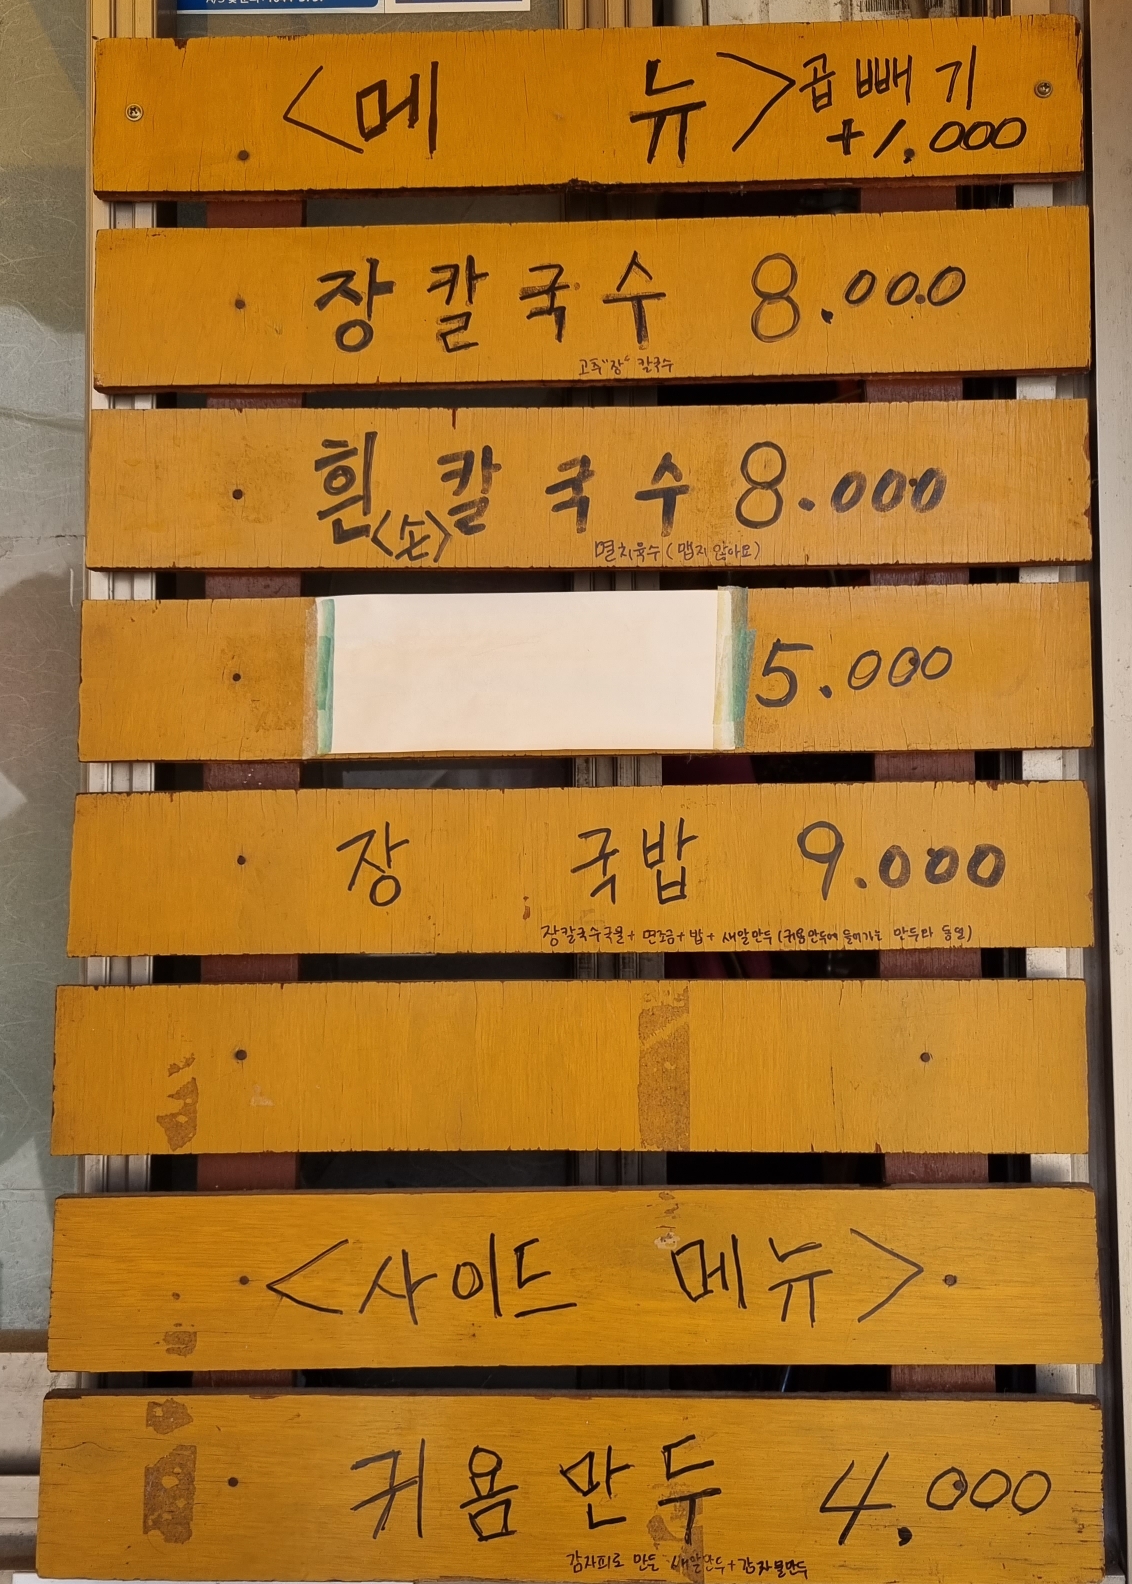 <메 뉴> 곱빼기
+1.000
장칼국수 8.000
고추"장" 칼국수
흰칼국수 8.000
<손>
멸치육수 (맵지 않아요)
5.000
장 국밥 9.000
장칼국수국물 + 면조금 + 밥 + 새알만두 (귀욤만두에 들어가는 만두와 동일)
<사이드 메뉴>
귀욤만두 4.000
감자피로 만든 새알만두 + 감자물만두